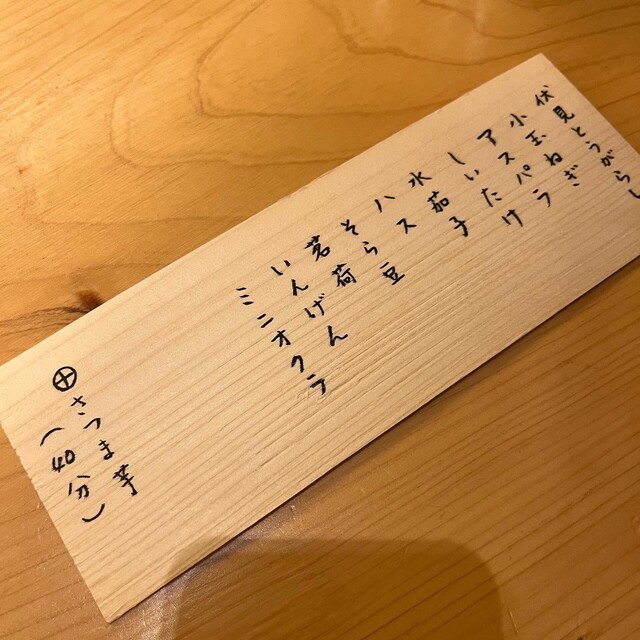 伏見とうがらし
小玉ねぎ
アスパラ
しいたけ
水茄子
ハス
そら豆
茗荷
いんげん
ミニオクラ
⊕さつま芋
(40分)